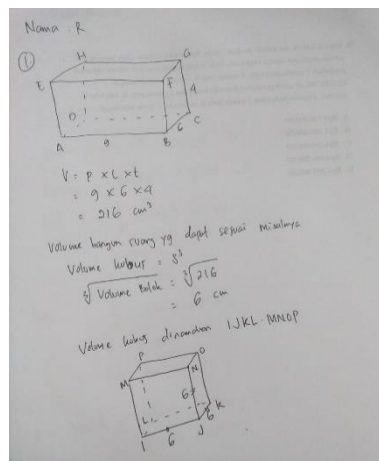 Nama R
1
H
G
E
F
4
D
C
6
A
9
B
V = P x L x t
= 9 x 6 x 4
= 216 cm³
Volume bangun ruang yg dapat sesuai misalnya
Volume kubus = S³
³√Volume Balok = ³√216
= 6 cm
Volume kubus dinamakan IJKL.MNOP
P
O
M
N
6
L
K
6
I
6
J